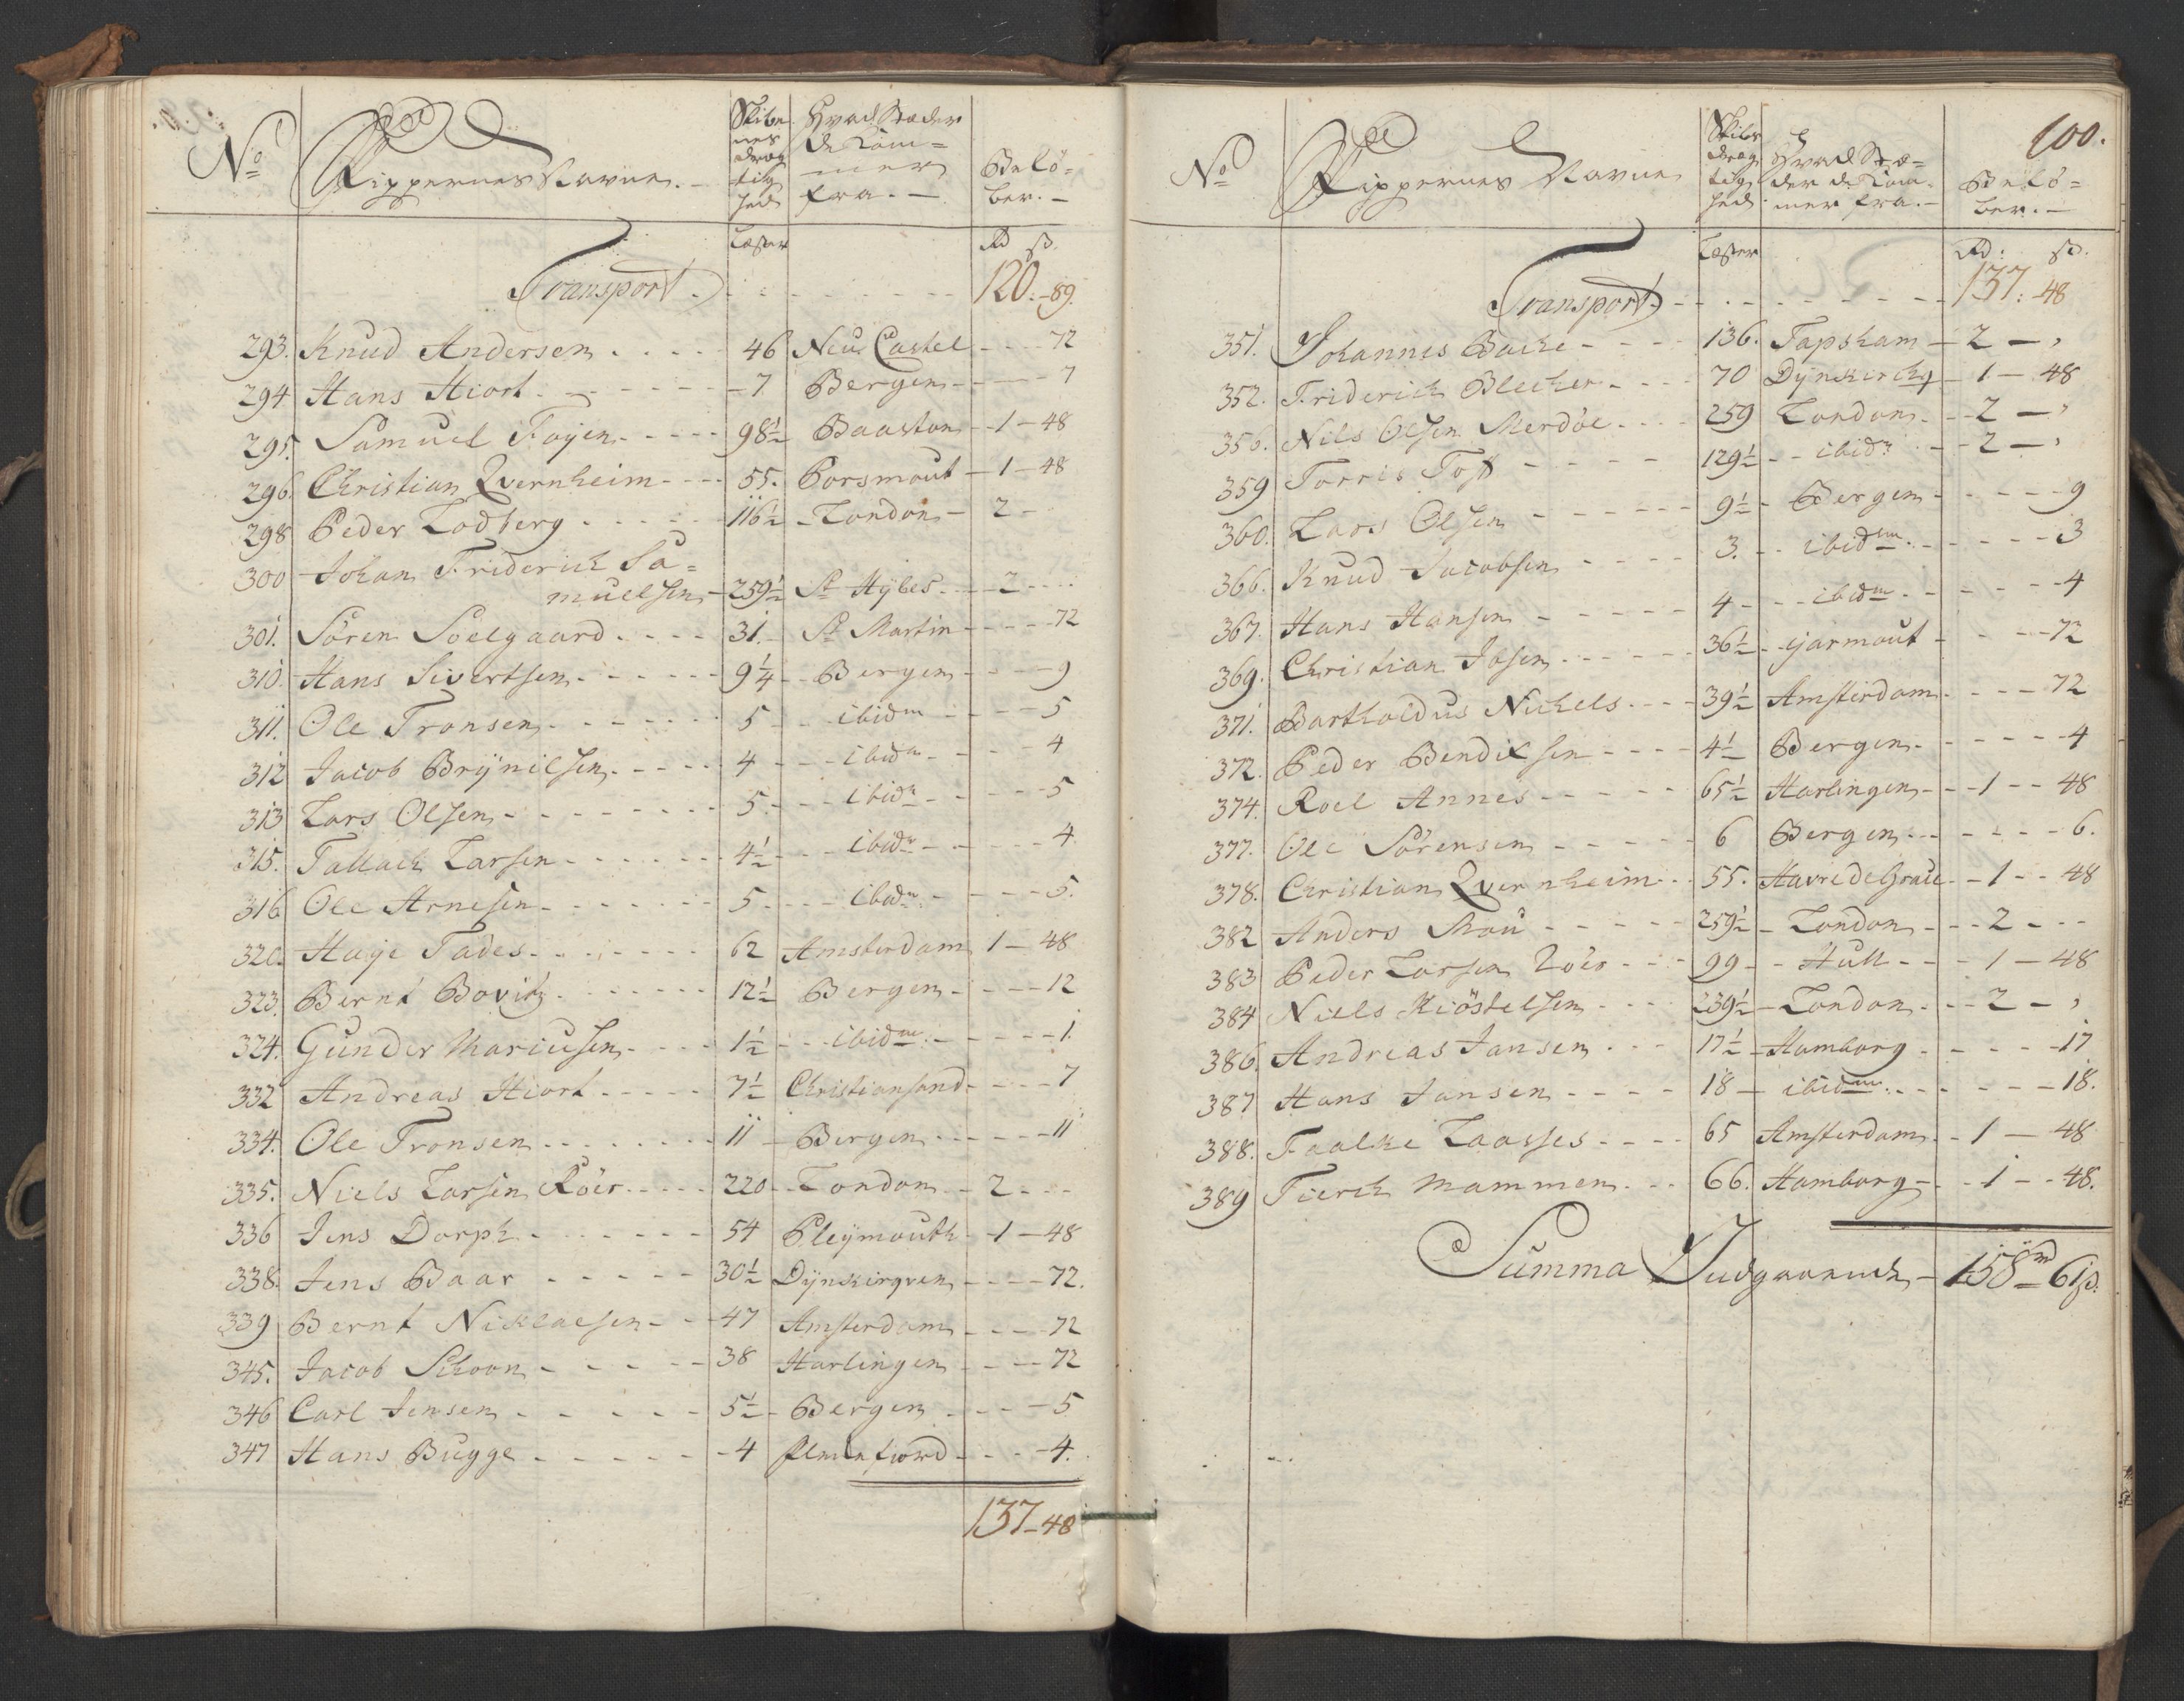 No
Skippernes Navne.
Skibe
nes
dræg
tig
hed
Hvad Stæder
de Kom=
mer
fra.
Belö=
ber.
Læster
Rd sk.
Transport 120.-89.
293. Knud Andersen 46 Neu Castel 72
294 Hans Hiort 7 Bergen 7
295. Samuel Foyen 98½ Baaston 1-48
296 Christian Qvernheim 55. Porsmout 1-48
298 Peder Lodberg 116½ London 2
300 Johan Friderich Sa=
muelsen 259½ St Hybes 2
301. Sören Soelgaard 31. St Martin 72
310. Hans Sivertsen 9¼ Bergen 9
311. Ole Tronsen 5 ibidm 5
312 Jacob Brÿnilsen 4 ibidm 4
313 Lars Olsen 5 ibidm 5
315. Tallach Larsen 4½ ibidm 4
316 Ole Arnesen 5 ibidm 5.
320. Haye Tades 62 Amsterdam 1-48
323. Bernt Bovitz 12½ Bergen 12
324. Gunder Mariusen 1½ ibidm 1.
332 Andreas Hiort 7½ Christiansand 7
334. Ole Tronsen 11 Bergen 11
335. Niels Larsen Röer 220 London 2
336 Jens Dorph 54 Pleÿmouth 1-48
338. Jens Baar 30½ Dÿnkirqven 72.
339 Bernt Nicklaesen 47 Amsterdam 72
345. Jacob Schoon 38 Harlingen 72
346 Carl Jensen 5½ Bergen 5
347 Hans Bugge 4 4.
137-48
100.
No
Skippernes Navne
Skibs
dræg
tig
hed
Hvad Stæ=
der de Kom-
mer fra.
Belö=
ber.
Læster
Rd: sk.
Transport 137:-48
351. Johannes Bache 136. Tapsham 2
352. Friderich Blecher 70 Dÿnkirchg 1-48
356. Nils Olsen Merdöe 259 London 2
359 Torris Toft 129½ ibidm 2
360. Lars Olsen 9½ Bergen 9
366. Knud Jacobsen 3. ibidm 3
367. Hans Hansen 4 ibidm 4
369. Christian Ibsen 36½ Yarmout 72
371. Bartholdus Nichels 39½ Amsterdam 72
372. Peder Bendixsen 4½ Bergen 4
374. Roel Annes 65½ Harlingen 1-48
377. Ole Sörensen 6 Bergen 6.
378. Christian Qvernheim 55. Havre de Grace 1-48
382 Anders Mou 259½ London 2
383 Peder Larsen Röer 99 Hull 1-48
384 Niels Kiöstelsen 239½ London 2
386. Andreas Jansen 17½ Hamborg 17
387 Hans Jansen 18 ibidm 18.
388. Faalke Laasses 65 Amsterdam 1-48
389 Tierck Mammen 66. Hamborg 1-48.
Summa Indgaaende 158 rd 61 s.